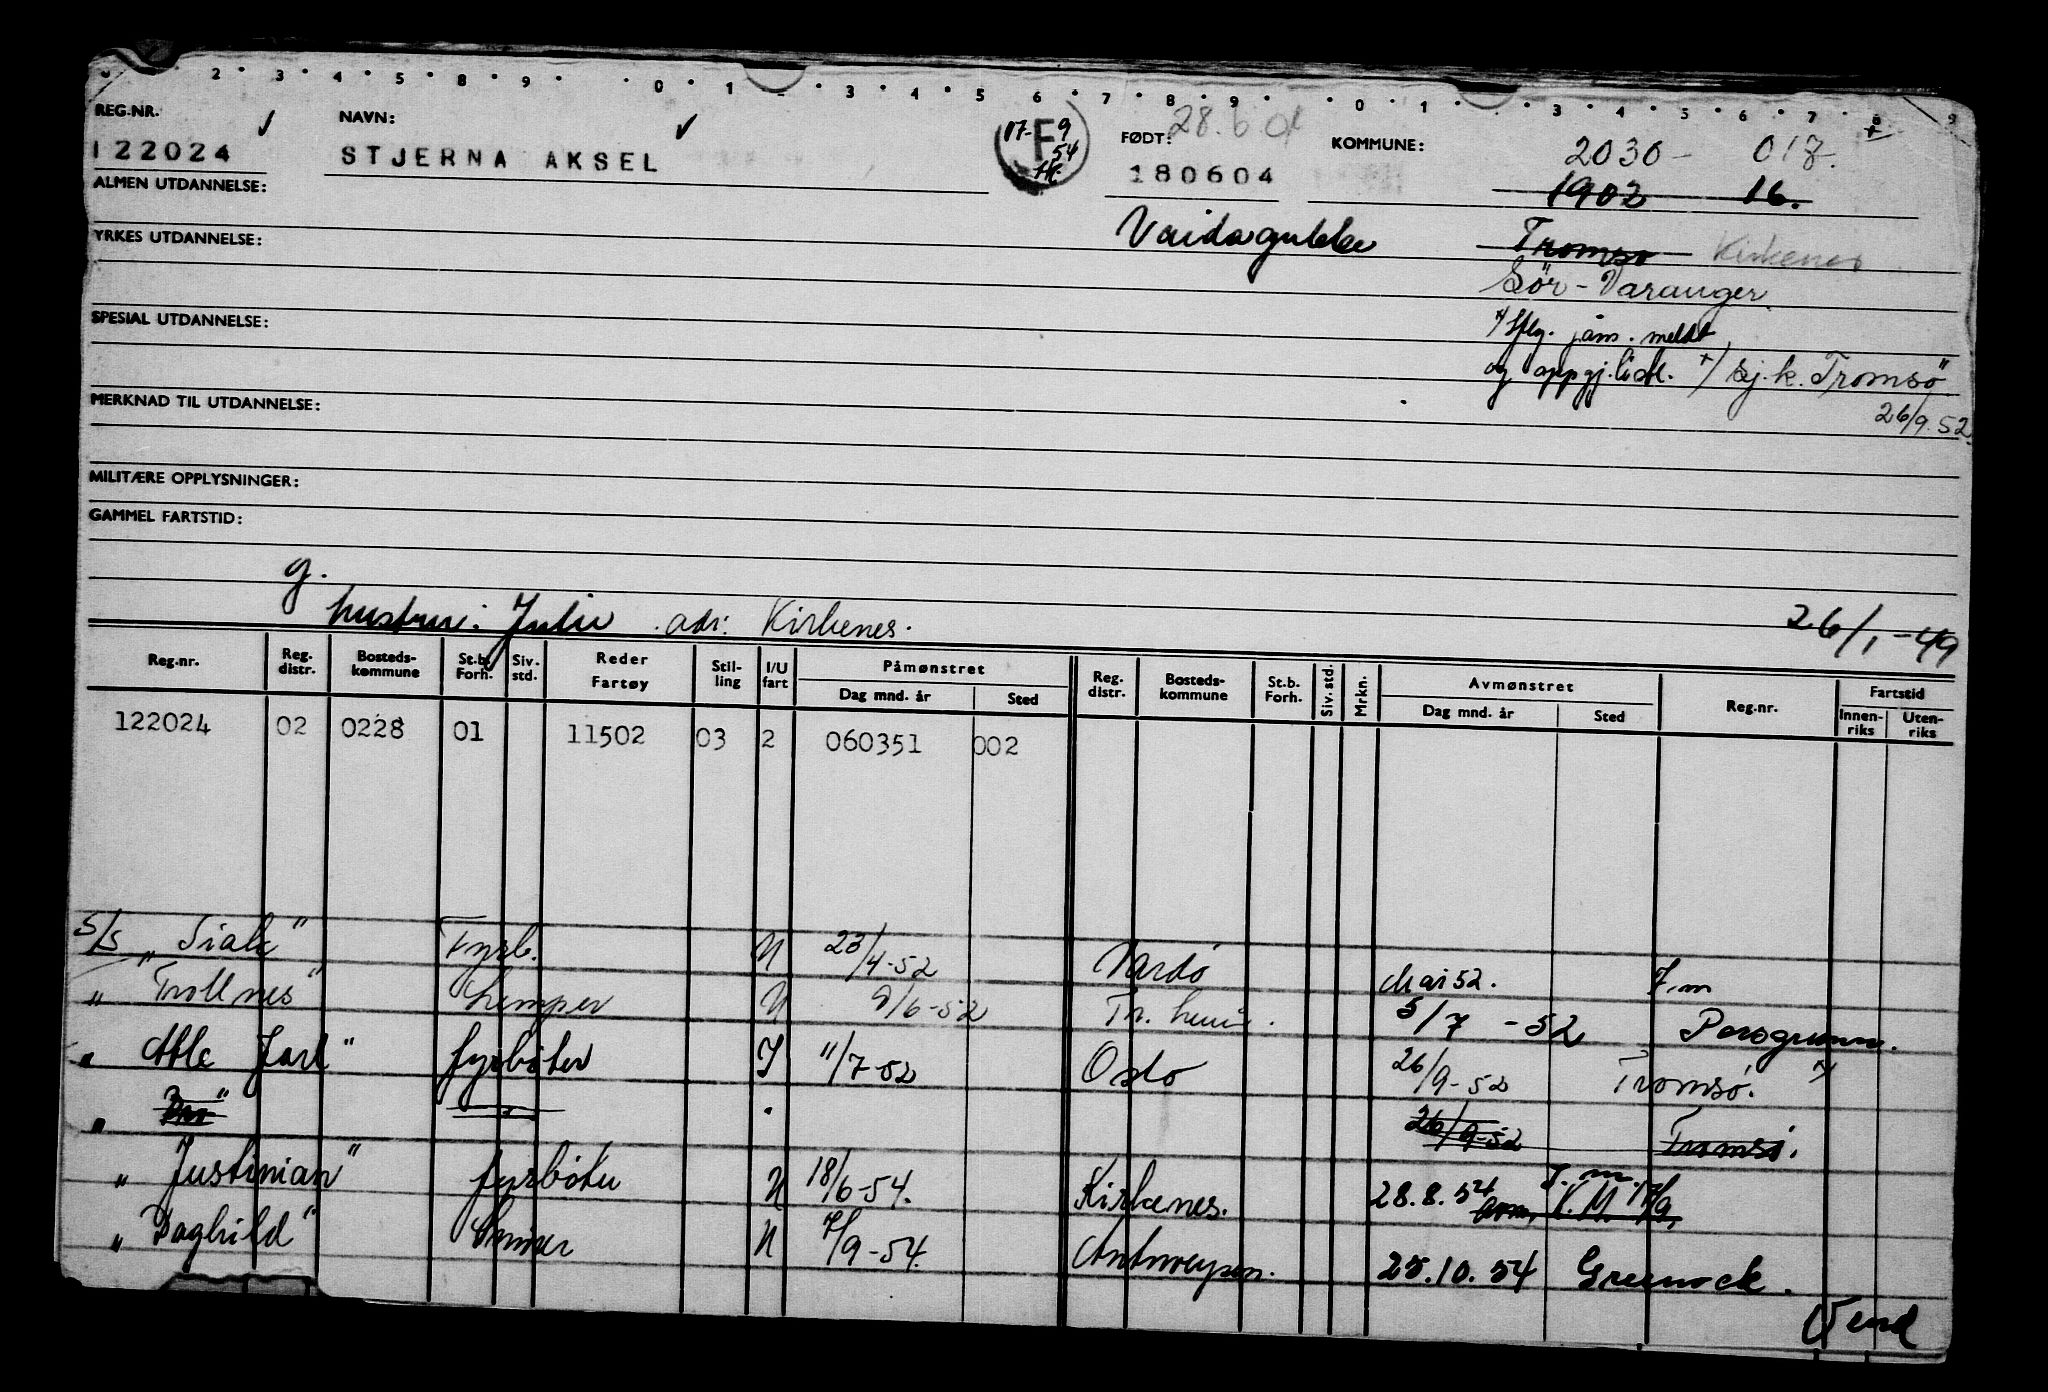 2 3 4 5 8 9 0 1 3 4 5 6 7 8 9 0 1 3 4 5 6 7 8 9
REG.NR. NAVN: FØDT: 28.6 04 KOMMUNE: 2030 - 018.
122024 STJERNA AKSEL 17- F 9 54 180604 1902 16.
ALMEN UTDANNELSE:
Vaidagubbe Tromsø Kirkenes
YRKES UTDANNELSE:
Sör-Varanger
SPESIAL UTDANNELSE:
jam. meldt
og oppgj.list. +/ sj.k. Tromsø"
26/9.52
MERKNAD TIL UTDANNELSE:
MILITÆRE OPPLYSNINGER:
GAMMEL FARTSTID:
g.
hustru: Julie adr: Kirkenes. 26/1-49
Reg.nr. Reg. distr. Bosteds-kommune St.b. Forh. Siv. std. Reder Fartøy Stil-ling I/U fart Påmønstret Dag mnd. år Sted Reg. distr. Bosteds-kommune St.b. Forh. Siv. std. Mrkn. Avmønstret Dag mnd. år Sted Reg.nr. Fartstid Innen-riks Uten-riks
122024 02 0228 01 11502 03 2 060351 002
S/S " Fyrb. U 23/4-52 Vardø Mai 52. J.m
" Trollnes" Lemper U 9/6-52 Tr. heim. 5/7-52 Porsgrunn.
" Atle Jarl" fyrbøter I 11/7-52 Oslo 26/9-52 Tromsø.
" 26/9-52 Tromsø.
" Justinian" fyrbøter U 18/6-54. Kirkenes. 28.8.54 J.m. 17/9
" Daghild" U 7/9-54. Antwerpen. 25.10.54 Greenock.
Vend